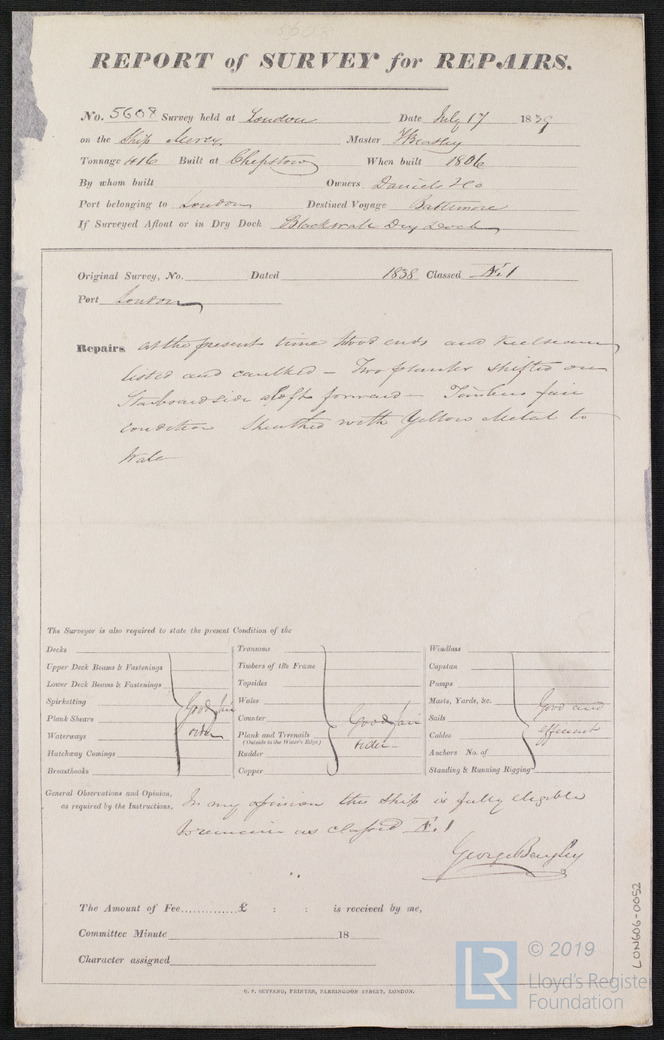 5608
REPORT of SURVEY for REPAIRS.
No. 5608 Survey held at London Date July 17 1839
on the Ship Mercy Master Beazley
Tonnage 416 Built at Chepstow When built 1806
By whom built Owners Daniels & Co
Port belonging to London Destined Voyage Baltimore
If Surveyed Afloat or in Dry Dock Blackwall Dry Dock
Original Survey, No. Dated 1838 Classed Æ.1
Port London
Repairs at the present time Hood ends and Keelseam
listed and caulked – Two planks shifted on
Starboard side aloft forward – Timbers fair
condition Sheathed with Yellow Metal to
Wale
The Surveyor is also required to state the present Condition of the
Decks
Upper Deck Beams & Fastenings
Lower Deck Beams & Fastenings
Spirketting
Plank Shears
Waterways
Hatchway Comings
Breasthooks
Good fair
order
Transoms
Timbers of the Frame
Topsides
Wales
Counter
Plank and Treenails
(Outside to the Water's Edge)
Rudder
Copper
Good fair
order
Windlass
Capstan
Pumps
Masts, Yards, &c.
Sails
Cables
Anchors No. of
Standing & Running Rigging
Good and
efficient
General Observations and Opinion,
as required by the Instructions.
In my opinion this Ship is fully eligible
to remain as classed Æ.1
George Bayley
The Amount of Fee.............£ : : is received by me,
Committee Minute 18
Character assigned
C. F. SEYFANG, PRINTER, FARRINGDON STREET, LONDON.
LON606-0052
LR
© 2019
Lloyd's Register
Foundation